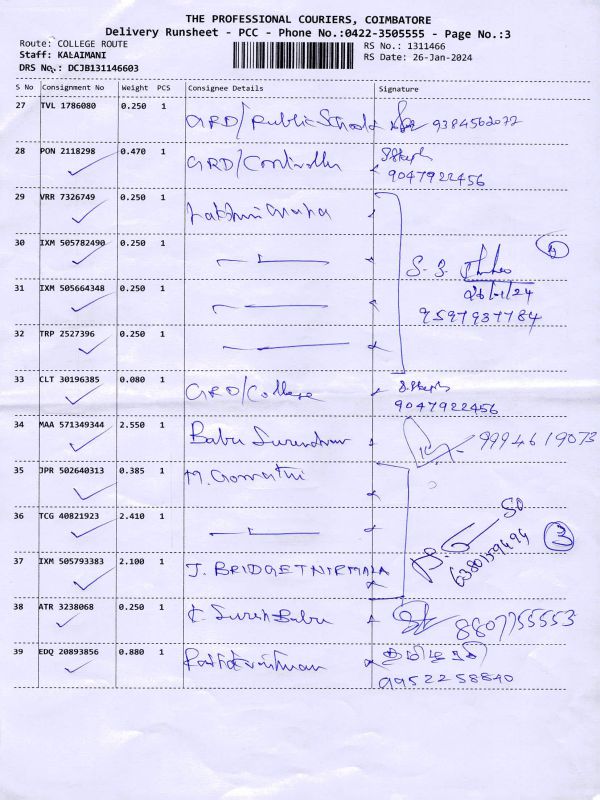 THE PROFESSIONAL COURIERS, COIMBATORE
Delivery Runsheet - PCC - Phone No.:0422-3505555 - Page No.:3
Route: COLLEGE ROUTE RS No.: 1311466
Staff: KALAIMANI RS Date: 26-Jan-2024
DRS No.: DCJB131146603
S No Consignment No Weight PCS Consignee Details Signature
27 TVL 1786080 0.250 1
GRD/Public School 9384562072
28 PON 2118298 0.470 1
GRD/Controller
9047922456
29 VRR 7326749 0.250 1
30 IXM 505782490 0.250 1
4
S. S.
31 IXM 505664348 0.250 1
26/1/24
9597937784
32 TRP 2527396 0.250 1
33 CLT 30196385 0.080 1
GRD/College
9047922456
34 MAA 571349344 2.550 1
Babu 9994619073
35 JPR 502640313 0.385 1
M. Gomathi
36 TCG 40821923 2.410 1
3
37 IXM 505793383 2.100 1
J. BRIDGET NIRMALA
38 ATR 3238068 0.250 1
K. Suresh Babu 8807755553
39 EDQ 20893856 0.880 1
9952258840